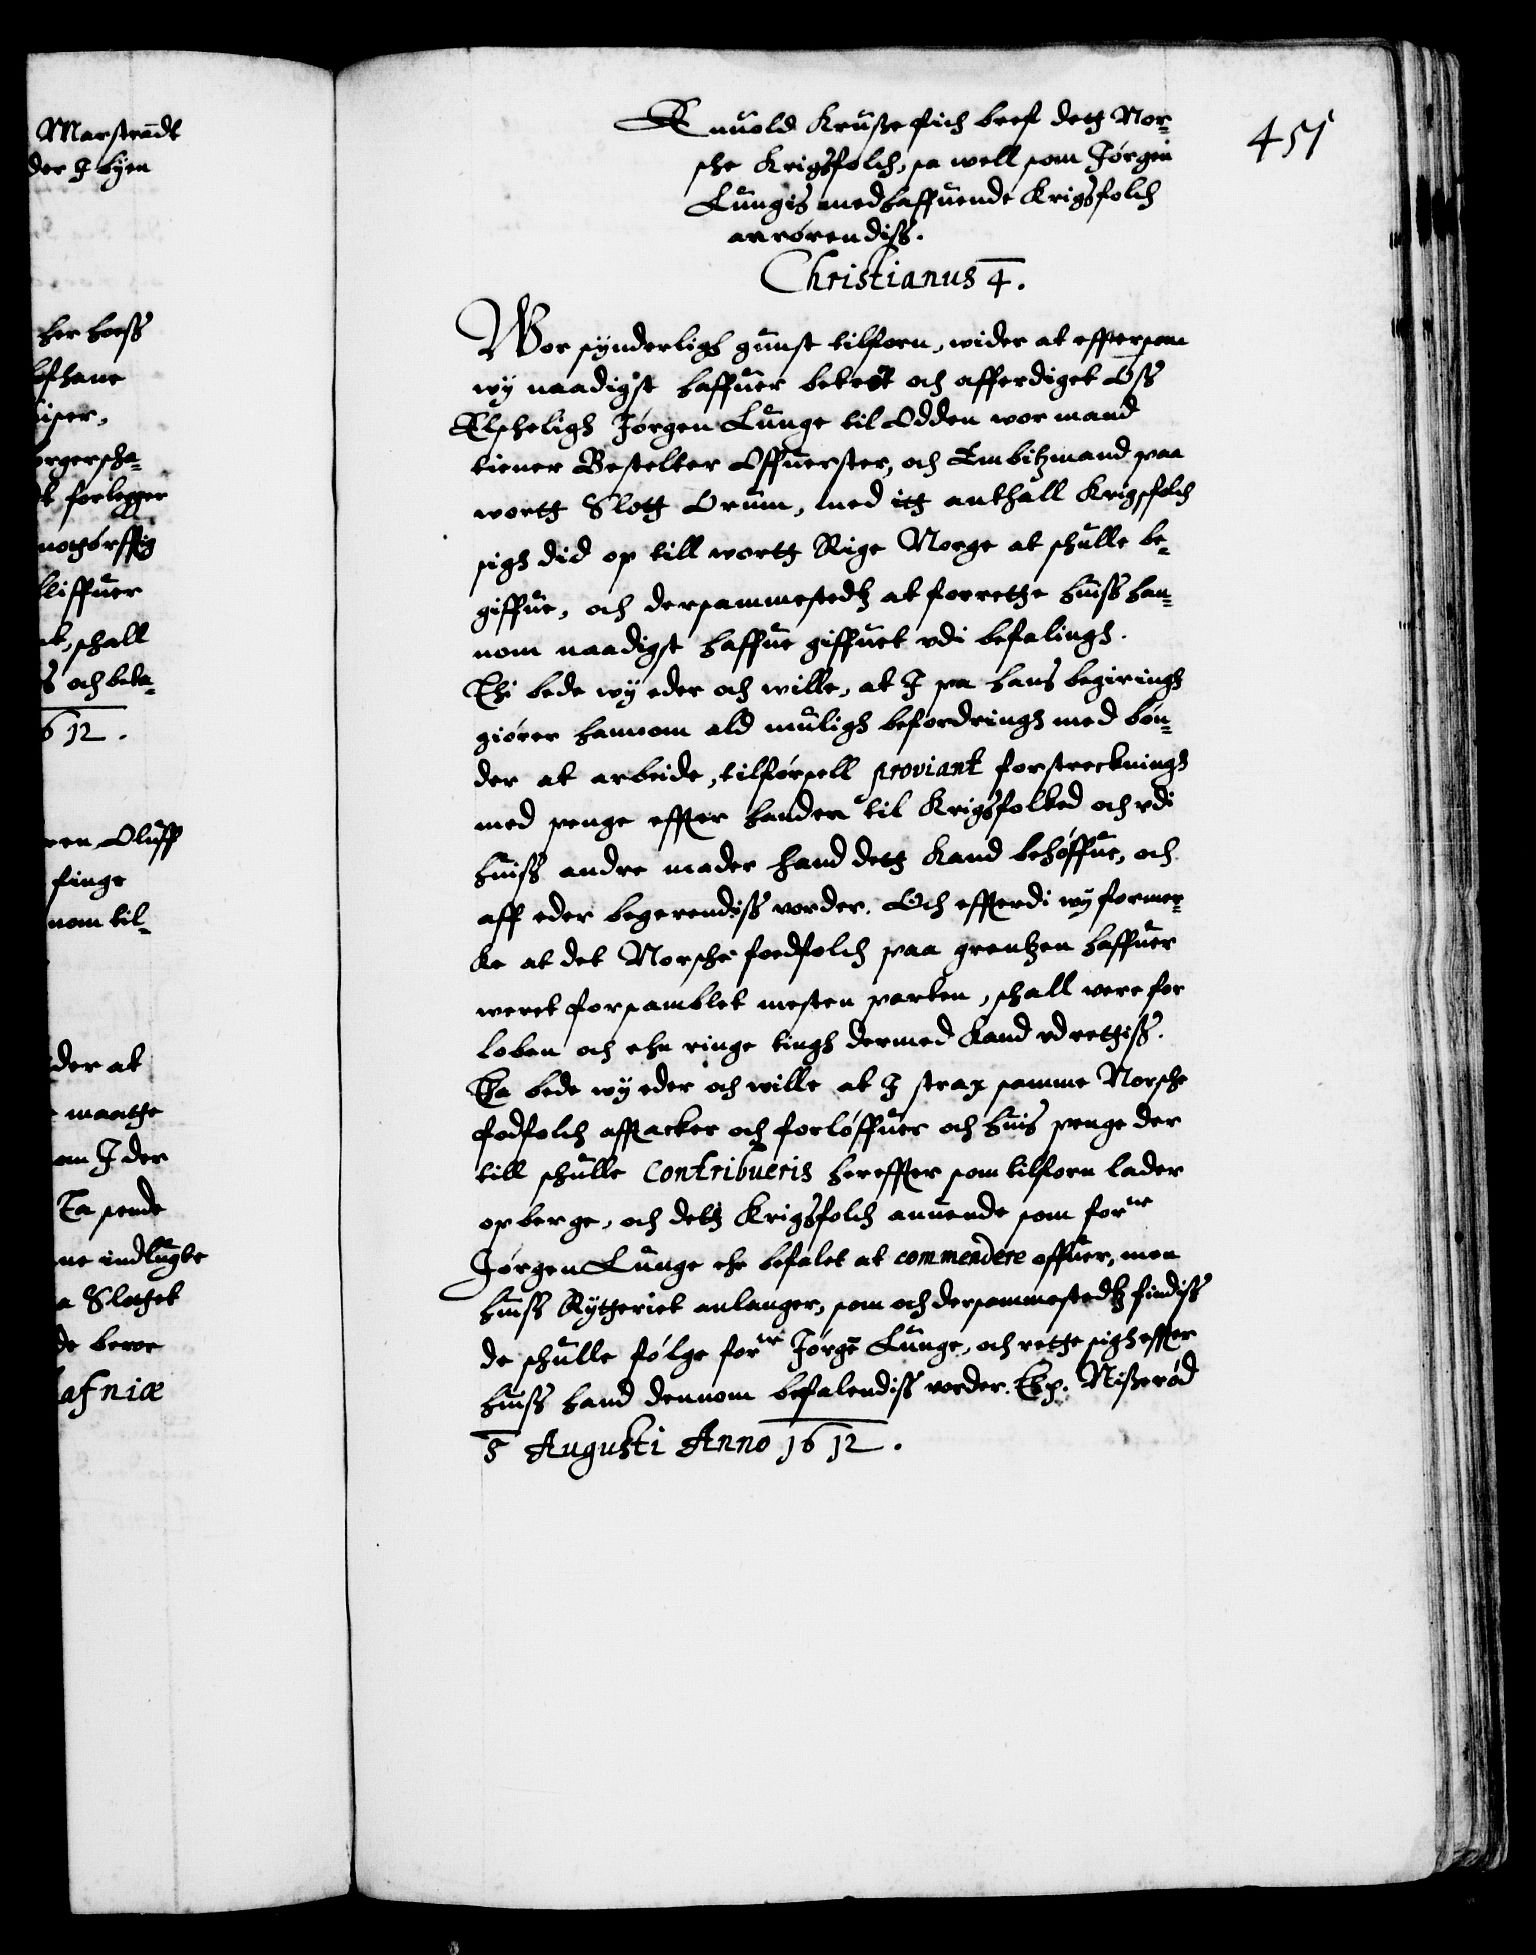 Marstrandt
der I byen
her hoess
orgerska-
dt forlegger
nottørfftig
bliffuer
at, schall
s och beta-
1612.
ren Oluff
finge
nom til-
der at
maatthe
om I der
Ta sende
ne indlugte
a Slottet
de beroe
afniæ
451
Enuold Krusse fich breff dett Nor-
sche Krigsfolch, sa well som Jørgen
Lungis medhaffuende Krigsfolch
anrørendiss.
Christianus 4.
Wor synderligh gunst tilforn, wider at efftersom
wy naadigst haffuer betroet och afferdiget Oss
Elscheligh Jørgen Lunge til Odden wor mand
tiener Bestelter Offuerster, och Embitzmand paa
wortt Slott Orum, med itt anthall Krigsfolch
sigh did op till wortt Rige Norge at schulle be-
giffue, och dersammestedtz at forrette huiss han-
nom naadigst haffue giffuet udi befalingh.
Thi bede wy eder och wille, at I pa hans begiringh
giører hannom ald muligh befordringh med bøn-
der at arbeide, tilførsell proviant forstrecknings
med penge effter handen til Krigsfolked och udi
huiss andre mader hand dett kand behøffue, och
aff eder begerendiss vorder. Och effterdi wy former-
ke at det Norsche foedfolch paa grentzen haffuer
weret forsamblet mesten parten, schall vere for
loben och ehn ringe tingh dermed kand udrettiss.
Ta bede wy eder och wille at I strax samme Norsche
fodfolch afftacker och forløffuer och huis penge der
till schulle Contribueris hereffter som tilforn lader
opberge, och dett Krigsfolch anuende som forne
Jørgen Lunge ehr befalet at commendere offuer, men
huiss Rytteriet anlanger, som och dersammestedtz findiss
de schulle følge forne Jørgen Lunge, och rette sigh effter
huiss hand dennom befalendiss vorder. Exp. Nisserød
8 Augusti Anno 1612.